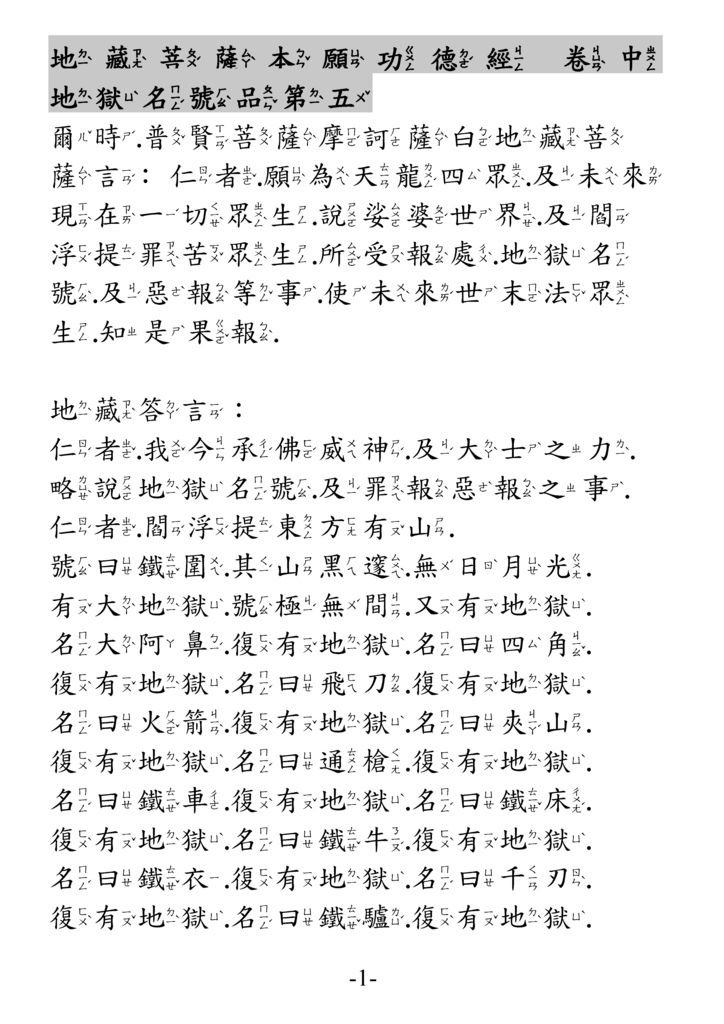 地藏菩薩本願功德經 卷中
地獄名號品第五
爾時.普賢菩薩摩訶薩白地藏菩
薩言： 仁者.願為天龍四眾.及未來
現在一切眾生.說娑婆世界.及閻
浮提罪苦眾生.所受報處.地獄名
號.及惡報等事.使未來世末法眾
生.知是果報.
地藏答言：
仁者.我今承佛威神.及大士之力.
略說地獄名號.及罪報惡報之事.
仁者.閻浮提東方有山.
號曰鐵圍.其山黑邃.無日月光.
有大地獄.號極無間.又有地獄.
名大阿鼻.復有地獄.名曰四角.
復有地獄.名曰飛刀.復有地獄.
名曰火箭.復有地獄.名曰夾山.
復有地獄.名曰通槍.復有地獄.
名曰鐵車.復有地獄.名曰鐵床.
復有地獄.名曰鐵牛.復有地獄.
名曰鐵衣.復有地獄.名曰千刃.
復有地獄.名曰鐵驢.復有地獄.
-1-